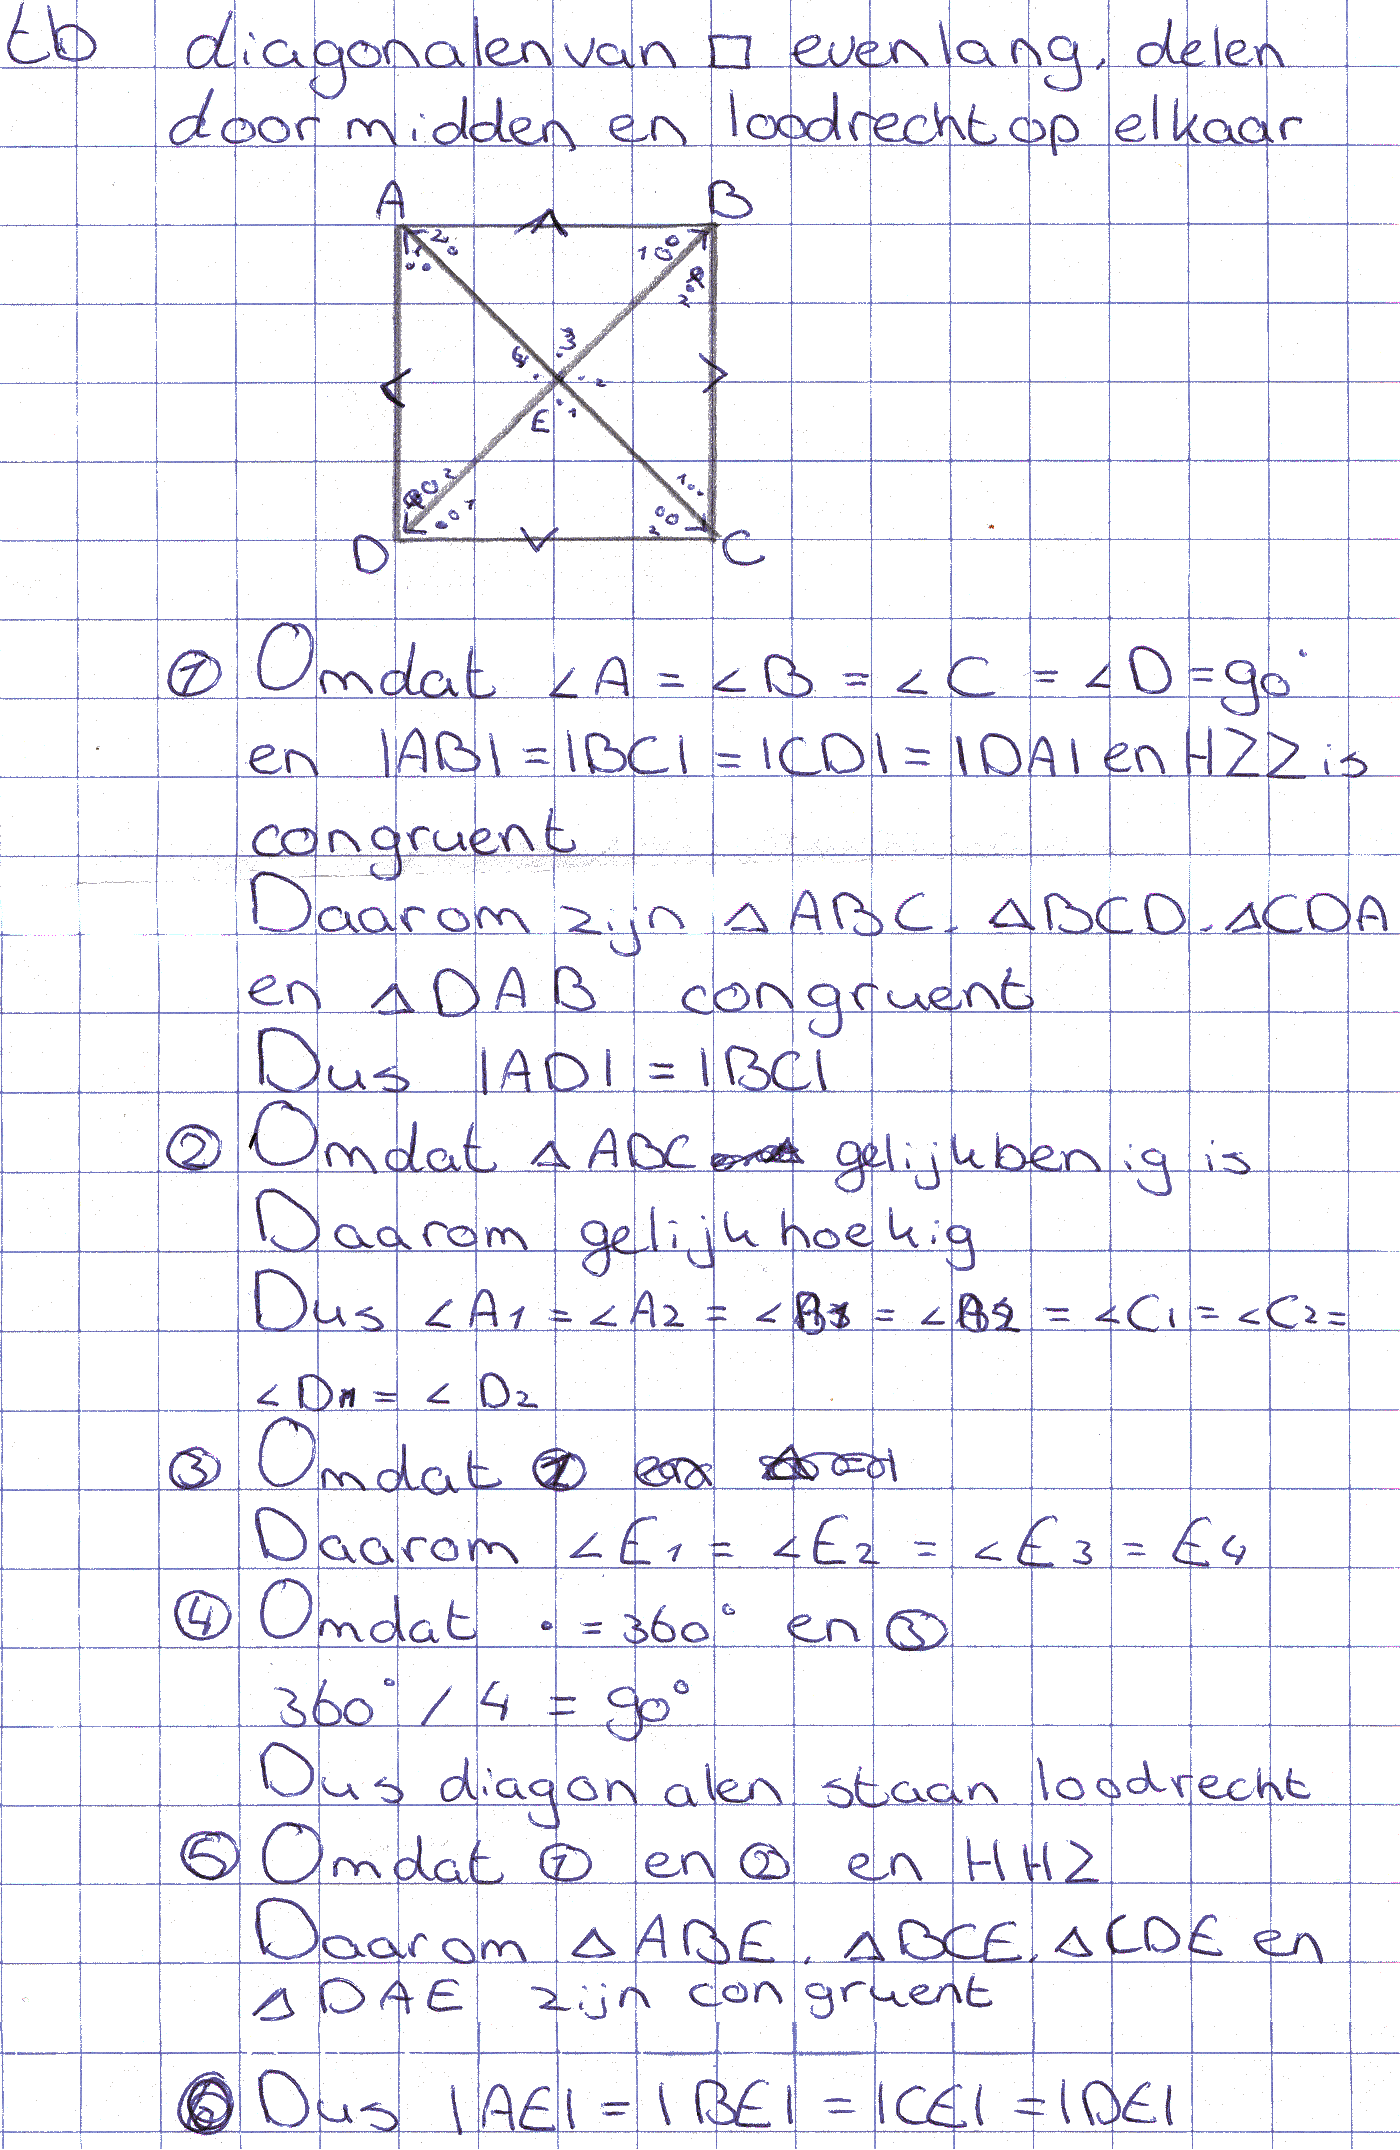 tb diagonalen van □ evenlang, delen
door midden en loodrecht op elkaar
A B
1 2 1
2
3
4 2
E 1
2 1
1 3
D C
① Omdat ∠A = ∠B = ∠C = ∠D = 90°
en |AB| = |BC| = |CD| = |DA| en HZZ is
congruent
Daarom zijn △ABC, △BCD, △CDA
en △DAB congruent
Dus |AD| = |BC|
② Omdat △ABC gelijkbenig is
Daarom gelijkhoekig
Dus ∠A1 = ∠A2 = ∠B1 = ∠B2 = ∠C1 = ∠C2 =
∠D1 = ∠D2
③ Omdat ②
Daarom ∠E1 = ∠E2 = ∠E3 = E4
④ Omdat • = 360° en ③
360° / 4 = 90°
Dus diagonalen staan loodrecht
⑤ Omdat ① en ② en HHZ
Daarom △ABE, △BCE, △CDE en
△DAE zijn congruent
⑥ Dus |AE| = |BE| = |CE| = |DE|